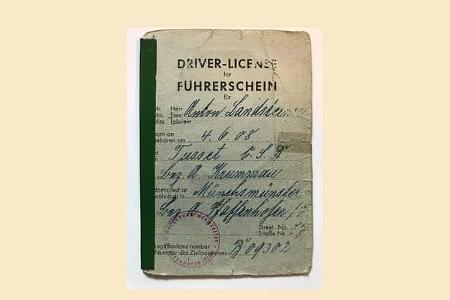 DRIVER-LICENSE
for
FÜHRERSCHEIN
für
Mr. Herr
Mrs. Frau Anton
Miss. Fräulein
born on
geboren am 4.6.08
at
in Tusset Č.S.R
Bez. A. Krummau
domiciled at
wohnhaft in Münchsmünster
Bez. A. Pfaffenhofen
Street-No.
Straße Nr.
Legitimations number
Nummer des Zivilausweises B 09302